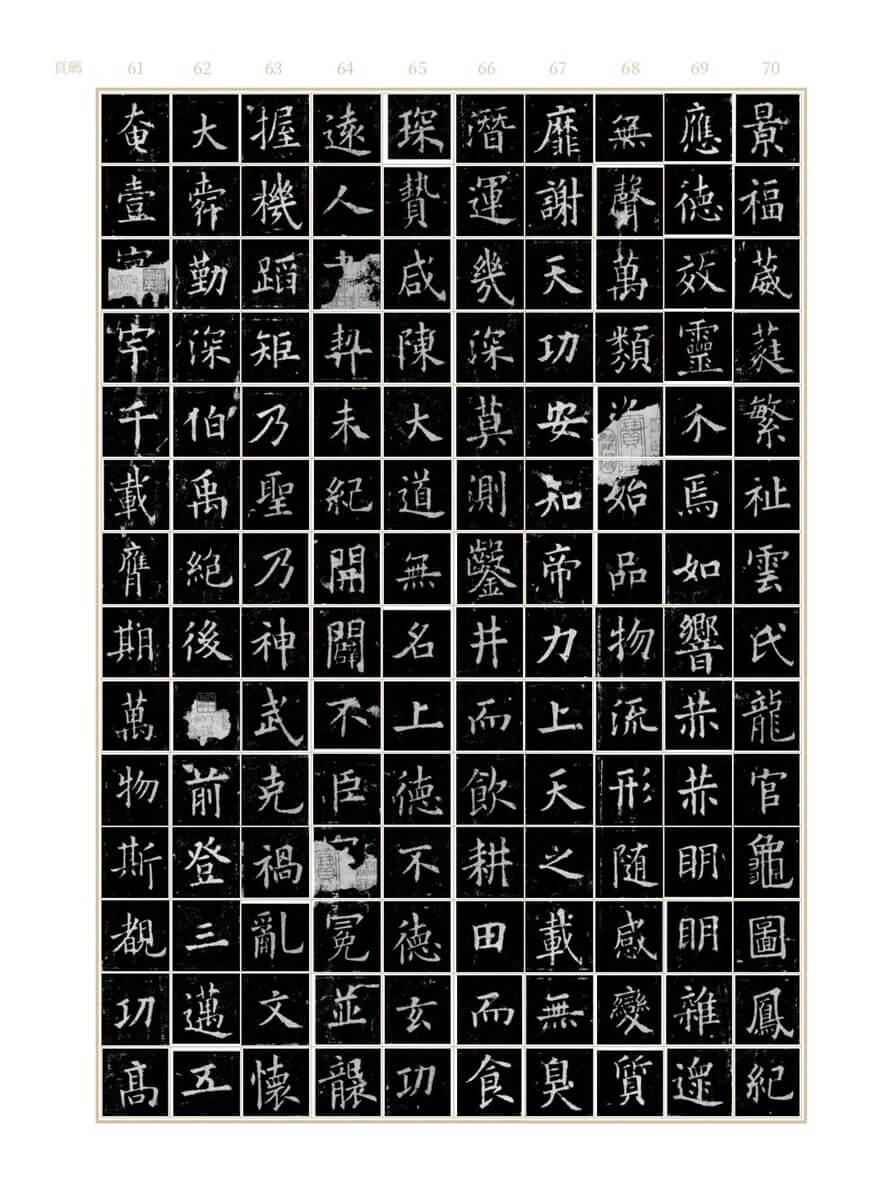 頁碼 61 62 63 64 65 66 67 68 69 70
奄壹宇千載膺期萬物斯覩功高
大舜勤深伯禹絕後前登三邁五
握機蹈矩乃聖乃神武克禍亂文懷
遠人契未紀開闢不臣冕並襲
琛贄咸陳大道無名上德不德玄功
潛運幾深莫測鑿井而飲耕田而食
靡謝天功安知帝力上天之載無臭
無聲萬類始品物流形随感變質
應德效靈介焉如響赫赫明明雜遝
景福葳蕤繁祉雲氏龍官龜圖鳳紀